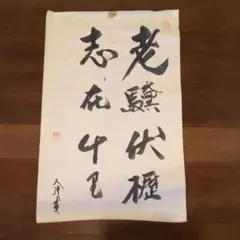 老驥伏櫪
志在千里